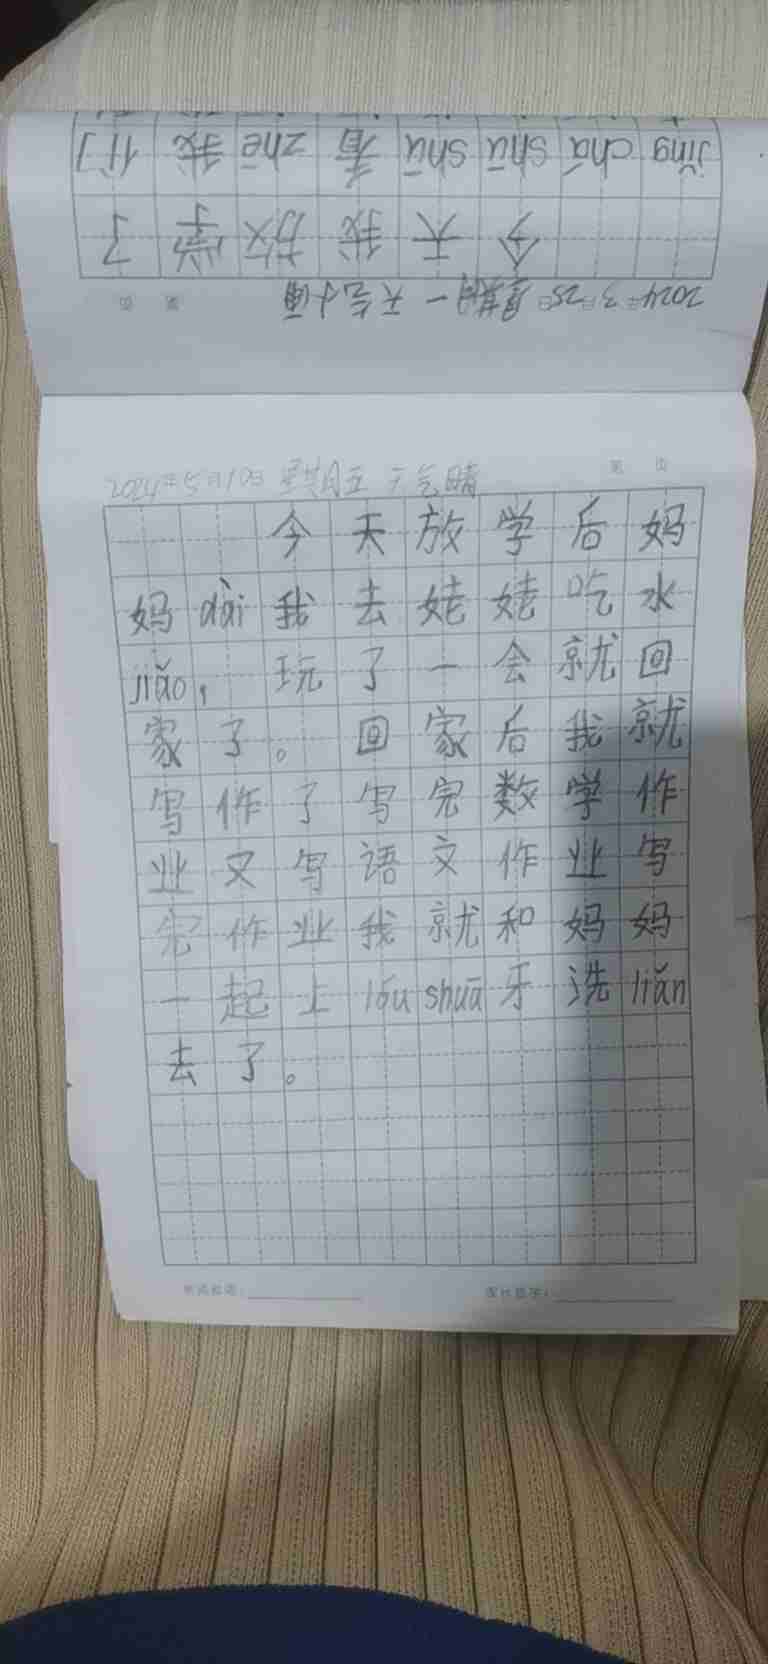 jǐng chá shū shu 看 zhē 我 们
今 天 我 放 学 了
2024年3月25日 星期一 天气小雨
第 页
2024年5月10日 星期五 天气晴
第 页
今天放学后妈
妈dài我去姥姥吃水
jiǎo，玩了一会就回
家了。回家后我就
写作了写完数学作
业又写语文作业写
完作业我就和妈妈
一起上lóu shuā牙洗liǎn
去了。